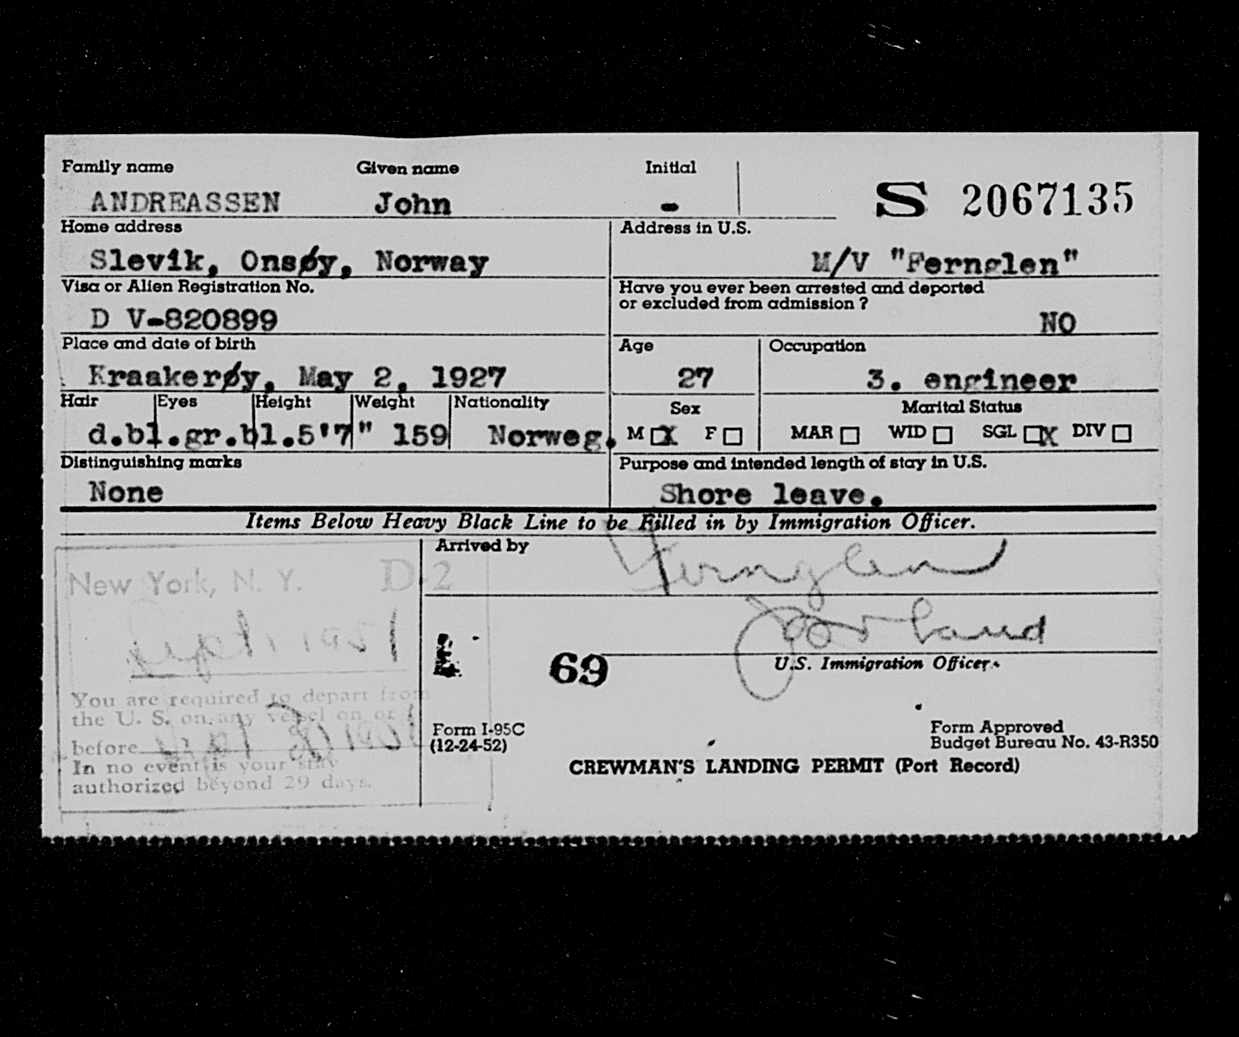 Family name Given name Initial
ANDREASSEN John - S 2067135
Home address Address in U.S.
Slevik, Onsøy, Norway M/V "Fernglen"
Visa or Alien Registration No. Have you ever been arrested and deported
or excluded from admission?
D V-820899 NO
Place and date of birth Age Occupation
Kraakerøy, May 2, 1927 27 3. engineer
Hair Eyes Height Weight Nationality Sex Marital Status
d.bl.gr.bl.5'7" 159 Norweg. M X F MAR WID SGL X DIV
Distinguishing marks Purpose and intended length of stay in U.S.
None Shore leave.
Items Below Heavy Black Line to be Filled in by Immigration Officer.
Arrived by Fernglen
New York, N. Y. D-2
69
U.S. Immigration Officer.
You are required to depart from
the U. S. on any vessel on or
before
In no event is your stay
authorized beyond 29 days.
Form I-95C
(12-24-52)
Form Approved
Budget Bureau No. 43-R350
CREWMAN'S LANDING PERMIT (Port Record)